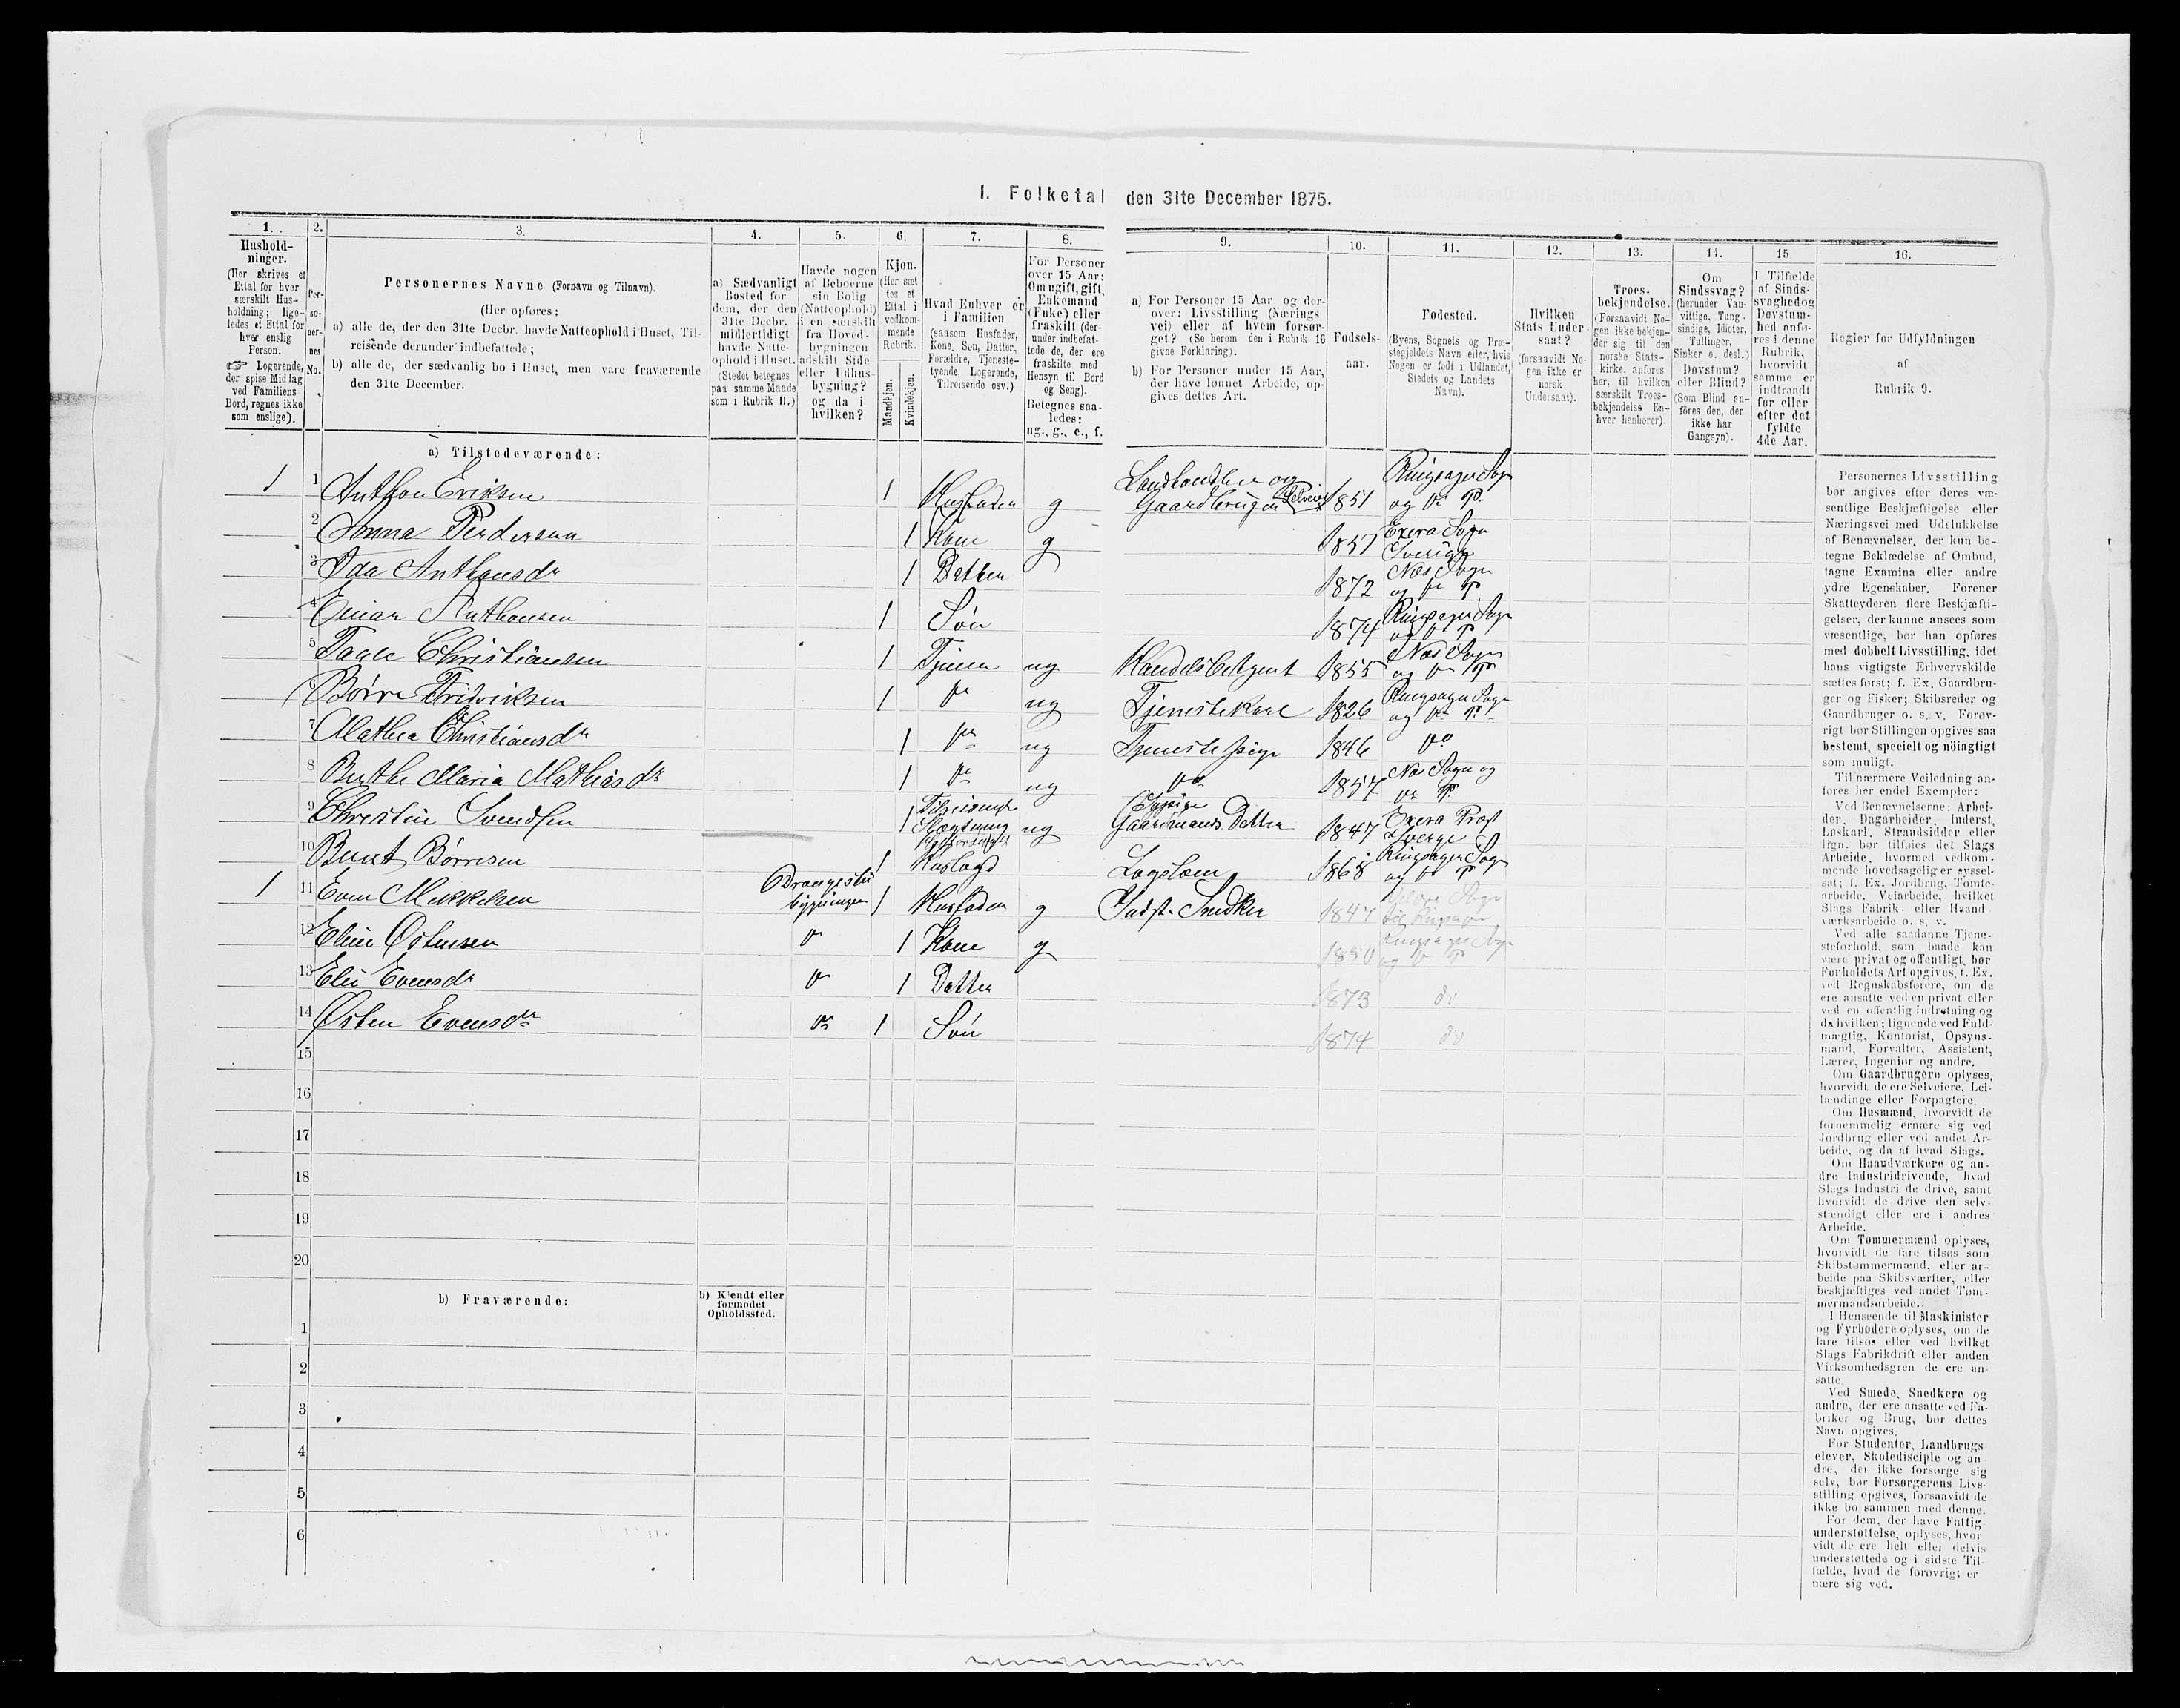 I. Folketal den 31te December 1875.
1. 2. 3. 4. 5. 6. 7. 8. 9. 10. 11. 12. 13. 14. 15. 16.
Hushold-
ninger.
(Her skrives et
Ettal for hver
særskilt Hus-
holdning; lige-
ledes et Ettal for
hver enslig
Person.
☞ Logerende,
der spise Middag
ved Familiens
Bord, regnes ikke
som enslige).
Per-
so-
ner-
nes
No.
Personernes Navne (Fornavn og Tilnavn).
(Her opføres:
a) alle de, der den 31te Decbr. havde Natteophold i Huset, Til-
reisende derunder indbefattede;
b) alle de, der sædvanlig bo i Huset, men vare fraværende
den 31te December.
a) Sædvanligt
Bosted for
dem, der den
31te Decbr.
midlertidigt
havde Natte-
ophold i Huset.
(Stedet betegnes
paa samme Maade
som i Rubrik 11.)
Havde nogen
af Beboerne
sin Bolig
(Natteophold)
i en særskilt
fra Hoved-
bygningen
adskilt Side
eller Udhus-
bygning?
og da i
hvilken?
Kjøn.
(Her sæt
tes et
Ettal i
vedkom-
mende
Rubrik.
Mandkjøn.
Kvindekjøn.
Hvad Enhver er
i Familien
(saasom Husfader,
Kone, Søn, Datter,
Forældre, Tjeneste-
tyende, Logerende,
Tilreisende osv.)
For Personer
over 15 Aar:
Om ugift, gift,
Enkemand
(Enke) eller
fraskilt (der-
under indbefat-
tede de, der ere
fraskilte med
Hensyn til Bord
og Seng).
Betegnes saa-
ledes:
ug., g., e., f.
a) For Personer 15 Aar og der-
over: Livsstilling (Nærings
vei) eller af hvem forsør-
get? (Se herom den i Rubrik 16
givne Forklaring).
b) For Personer under 15 Aar,
der have lønnet Arbeide, op-
gives dettes Art.
Fødsels-
aar.
Fødested.
(Byens, Sognets og Præ-
stegjeldets Navn eller, hvis
Nogen er født i Udlandet,
Stedets og Landets
Navn).
Hvilken
Stats Under-
saat?
(forsaavidt No-
gen ikke er
norsk
Undersaat).
Troes-
bekjendelse.
(Forsaavidt No-
gen ikke bekjen-
der sig til den
norske Stats-
kirke, anføres
her, til hvilken
særskilt Troes-
bekjendelse En-
hver henhører).
Om
Sindssvag?
(herunder Van-
vittige, Tung-
sindige, Idioter,
Tullinger,
Sinker o. desl.)
Døvstum?
eller Blind?
(Som Blind an-
føres den, der
ikke har
Gangsyn).
I Tilfælde
af Sinds-
svaghed og
Døvstum-
hed anfø-
res i denne
Rubrik,
hvorvidt
samme er
indtraadt
før eller
efter det
fyldte
4de Aar.
Regler for Udfyldningen
af
Rubrik 9.
a) Tilstedeværende:
1 1 Anthon Eriksen 1 Husfader g Landhandler og Gaardbruger Selveier 1851 Ringsager Sogn og do P.
2 Anna 1 Kone g 1857 Sogn Sverige
3 Ida Anthonsdr 1 Datter 1872 Næs Sogn og do P
4 Einar Anthonsen 1 Søn 1874 Ringsager Sogn og do P
5 Christiansen 1 Tjener ug Handelsbetjent 1855 Næs Sogn og do P
6 Børre Fredriksen 1 do ug Tjenestekarl 1826 Ringsager Sogn og do P.
7 Mathea Christiansdr 1 do ug Tjenestepige 1846 do
8 Berthe Maria Mathiasdr 1 do ug do 1857 Næs Sogn og do P.
9 Christine Svendsen 1 Tilreisende Slægtning ug Gaardmands Datter 1847 Præst Sverge
10 Bernt Børresen 1 Huslagd Lægslem 1868 Ringsager Sogn og do P
1 11 Even Mikkelsen bygningen 1 Husfader g Indst. Snedker 1847
12 Eline Østensen do 1 Kone g 1850 Ringsager Sogn og do P
13 Eli Evensdr do 1 Datter 1873 do
14 Østen Evensdr do 1 Søn 1874 do
15
16
17
18
19
20
b) Fraværende:
b) Kjendt eller
formodet
Opholdssted.
1
2
3
4
5
6
Personernes Livsstilling
bør angives efter deres væ-
sentlige Beskjæftigelse eller
Næringsvei med Udelukkelse
af Benævnelser, der kun be-
tegne Beklædelse af Ombud,
tagne Examina eller andre
ydre Egenskaber. Forener
Skatteyderen flere Beskjæfti-
gelser, der kunne ansees som
væsentlige, bør han opføres
med dobbelt Livsstilling, idet
hans vigtigste Erhvervskilde
sættes først; f. Ex. Gaardbru-
ger og Fisker; Skibsreder og
Gaardbruger o. s. v. Forøv-
rigt bør Stillingen opgives saa
bestemt, specielt og nöiagtigt
som muligt.
Til nærmere Veiledning an-
føres her endel Exempler:
Ved Benævnelserne: Arbei-
der, Dagarbeider, Inderst,
Løskarl, Strandsidder eller
lign. bør tilføies det Slags
Arbeide, hvormed vedkom-
mende hovedsagelig er syssel-
sat; f. Ex. Jordbrug, Tomte-
arbeide, Veiarbeide, hvilket
Slags Fabrik- eller Haand
værksarbeide o. s. v.
Ved alle saadanne Tjene-
steforhold, som baade kan
være privat og offentligt, bør
Forholdets Art opgives, t. Ex.
ved Regnskabsførere, om de
ere ansatte ved en privat eller
ved en offentlig Indretning og
da hvilken; lignende ved Fuld-
mægtig, Kontorist, Opsyns-
mand, Forvalter, Assistent,
Lærer, Ingeniør og andre.
Om Gaardbrugere oplyses,
hvorvidt de ere Selveiere, Lei-
lændinge eller Forpagtere.
Om Husmænd, hvorvidt de
fornemmelig ernære sig ved
Jordbrug eller ved andet Ar-
beide, og da af hvad Slags.
Om Haandværkere og an-
dre Industridrivende, hvad
Slags Industri de drive, samt
hvorvidt de drive den selv-
stændigt eller ere i andres
Arbeide.
Om Tømmermænd oplyses,
hvorvidt de fare tilsøs som
Skibstømmermænd, eller ar-
beide paa Skibsværfter, eller
beskjæftiges ved andet Tøm-
mermandsarbeide.
I Henseende til Maskinister
og Fyrbødere oplyses, om de
fare tilsøs eller ved hvilket
Slags Fabrikdrift eller anden
Virksomhedsgren de ere an-
satte.
Ved Smede, Snedkere og
andre, der ere ansatte ved Fa-
briker og Brug, bør dettes
Navn opgives.
For Studenter, Landbrugs
elever, Skoledisciple og an-
dre, der ikke forsørge sig
selv, bør Forsørgerens Livs-
stilling opgives, forsaavidt de
ikke bo sammen med denne.
For dem, der have Fattig
understøttelse, oplyses, hvor
vidt de ere helt eller delvis
understøttede og i sidste Til-
fælde, hvad de forøvrigt er
nære sig ved.